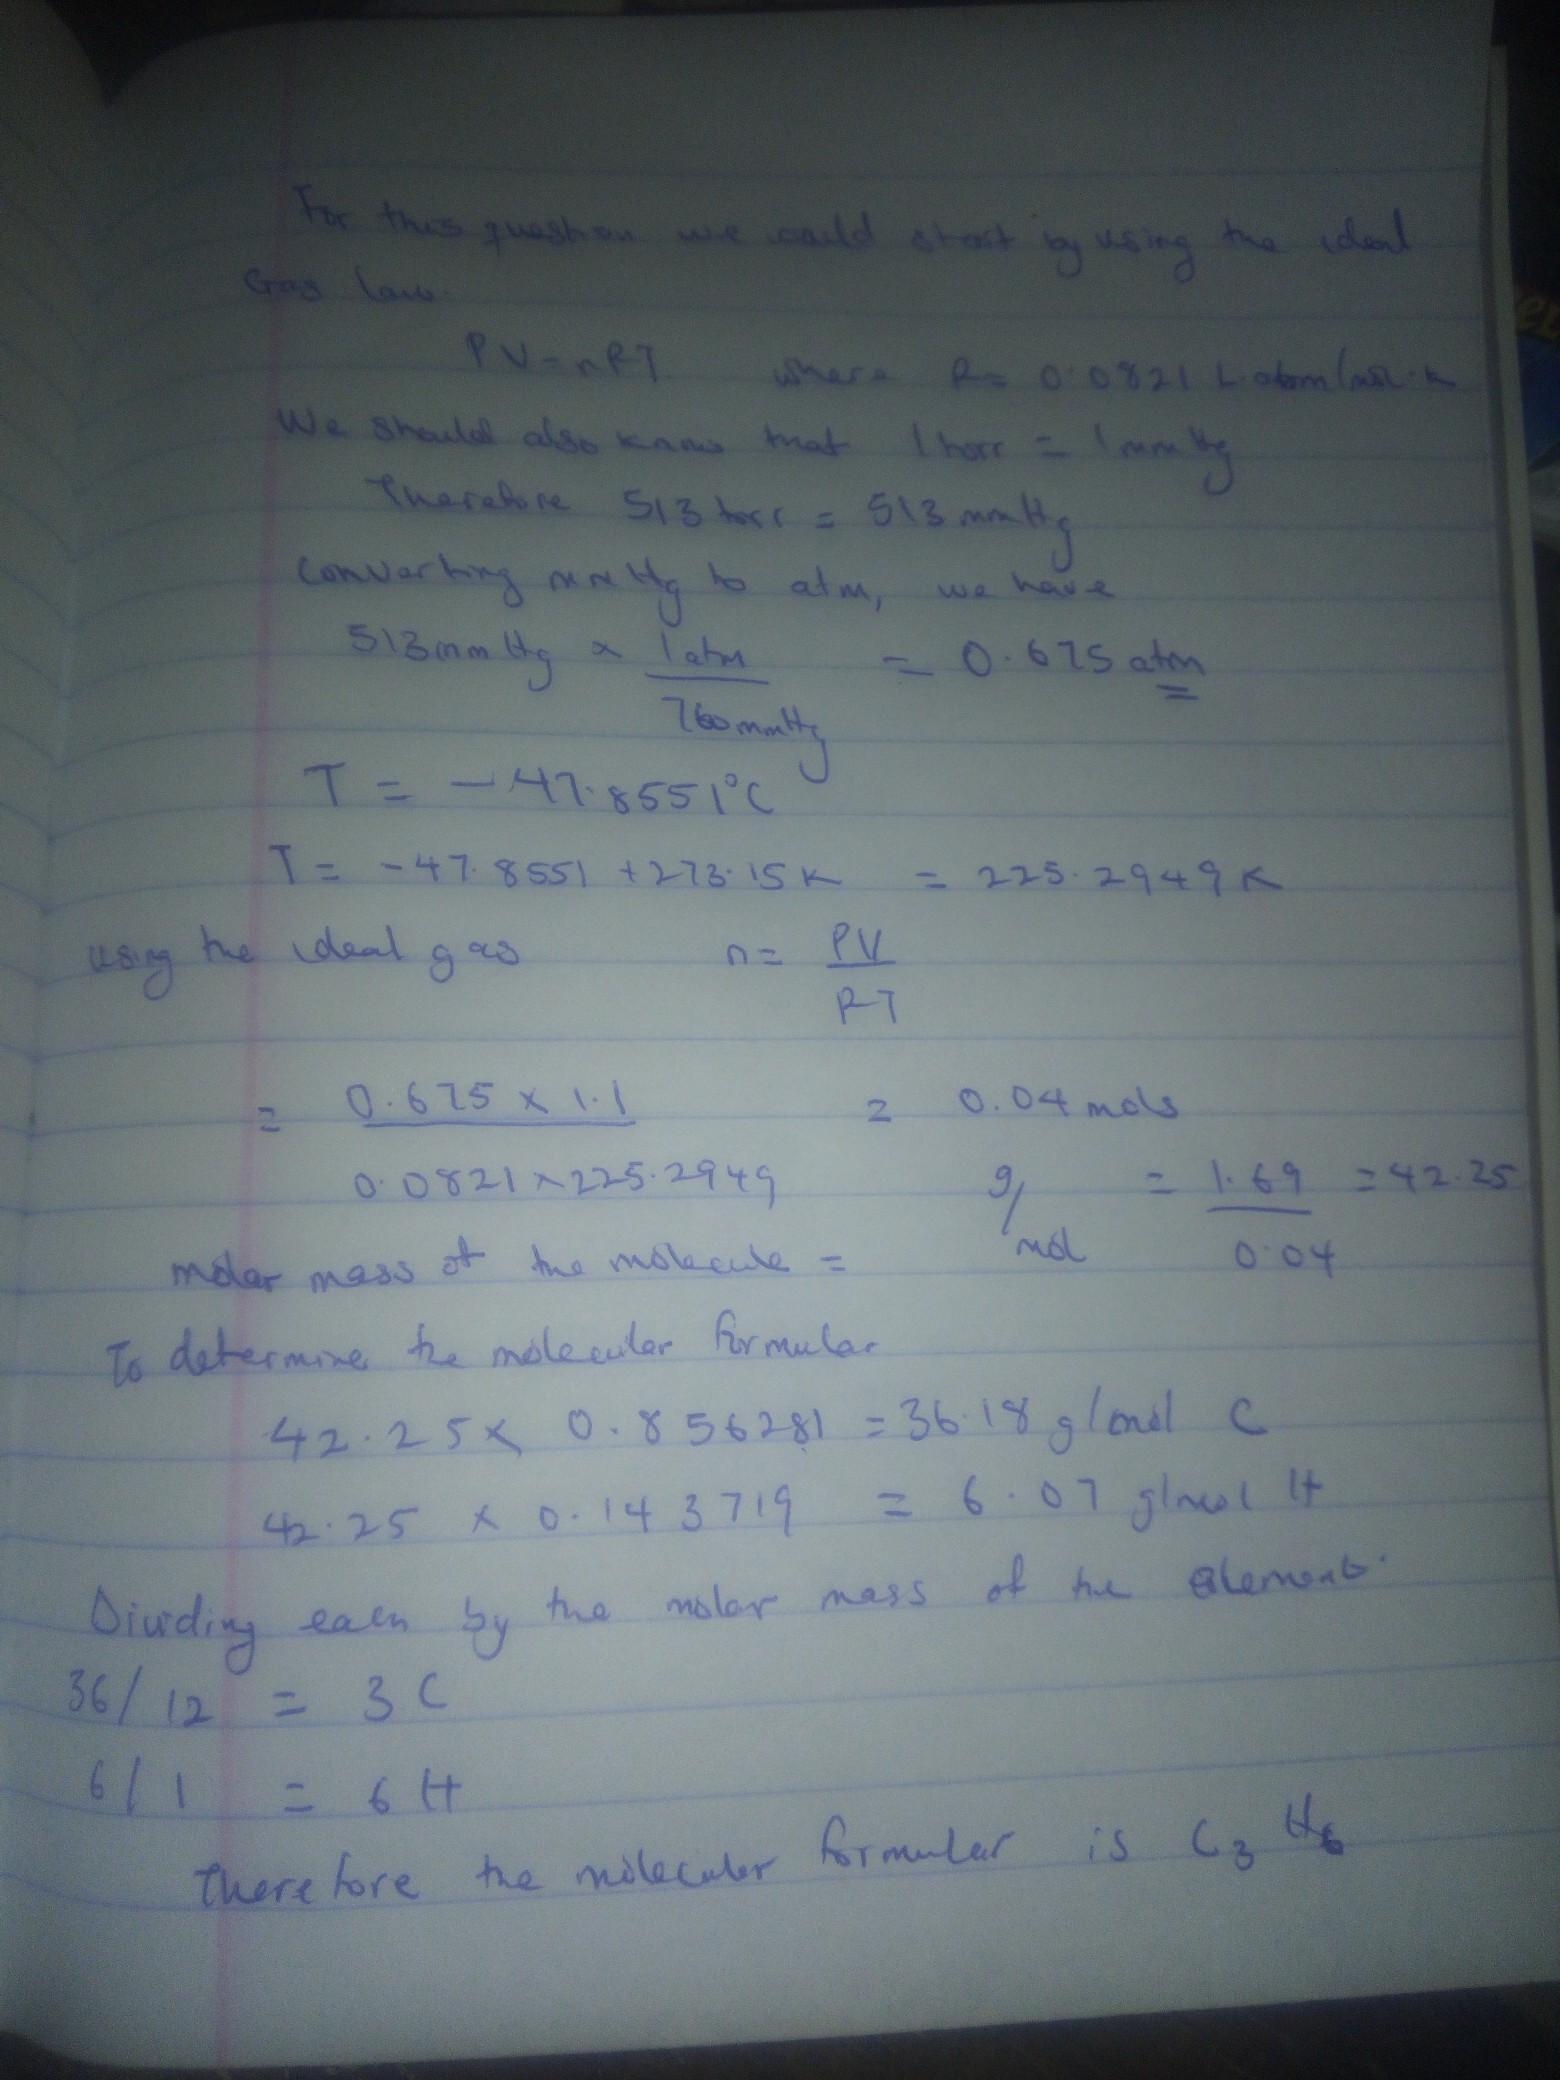 For this question we could start by using the ideal
Gas law.
PV=nRT where R= 0.0821 L.atom/mol.k
We should also know that 1 torr = 1 mmHg
Therefore 513 torr = 513 mmHg
converting mmHg to atm, we have
513 mmHg x 1 atm = 0.675 atm
760 mmHg
T = -47.8551°C
T = -47.8551 +273.15 K = 225.2949 K
using the ideal gas n = PV
RT
= 0.675 x 1.1 = 0.04 mols
0.0821 x 225.2949 g/ = 1.69 = 42.25
molar mass of the molecule = mol 0.04
To determine the molecular formular
42.25 x 0.856281 = 36.18 g/mol C
42.25 x 0.143719 = 6.07 g/mol H
Dividing each by the molar mass of the element.
36/12 = 3 C
6/1 = 6 H
Therefore the molecular formular is C3 H6